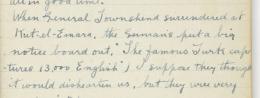 are in good time.
When General Townshend surrendered at
Kut-el-Emara, the Germans put a big
notice board out, "The famous Turk cap-
tures 13,000 English") I suppose they though
it would dishearten us, but they were very